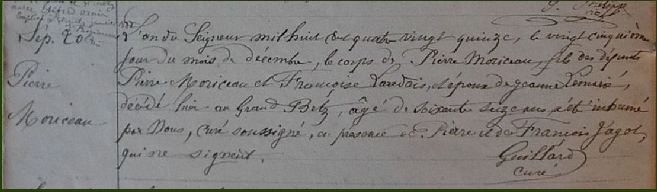 Sep. 20
Pierre
Moriceau
L'an du Seigneur mil huit cent quatre vingt quinze, le vingt cinquième
jour du mois de décembre, le corps de Pierre Moriceau, fils des défunts
Pierre Moriceau et Françoise Landois, et époux de Jeanne
décédé hier au Grand Betz, âgé de soixante seize ans a été inhumé
par Nous, curé soussigné, en présence de Pierre et de François Jagot,
qui ne signent.
Guillard
curé